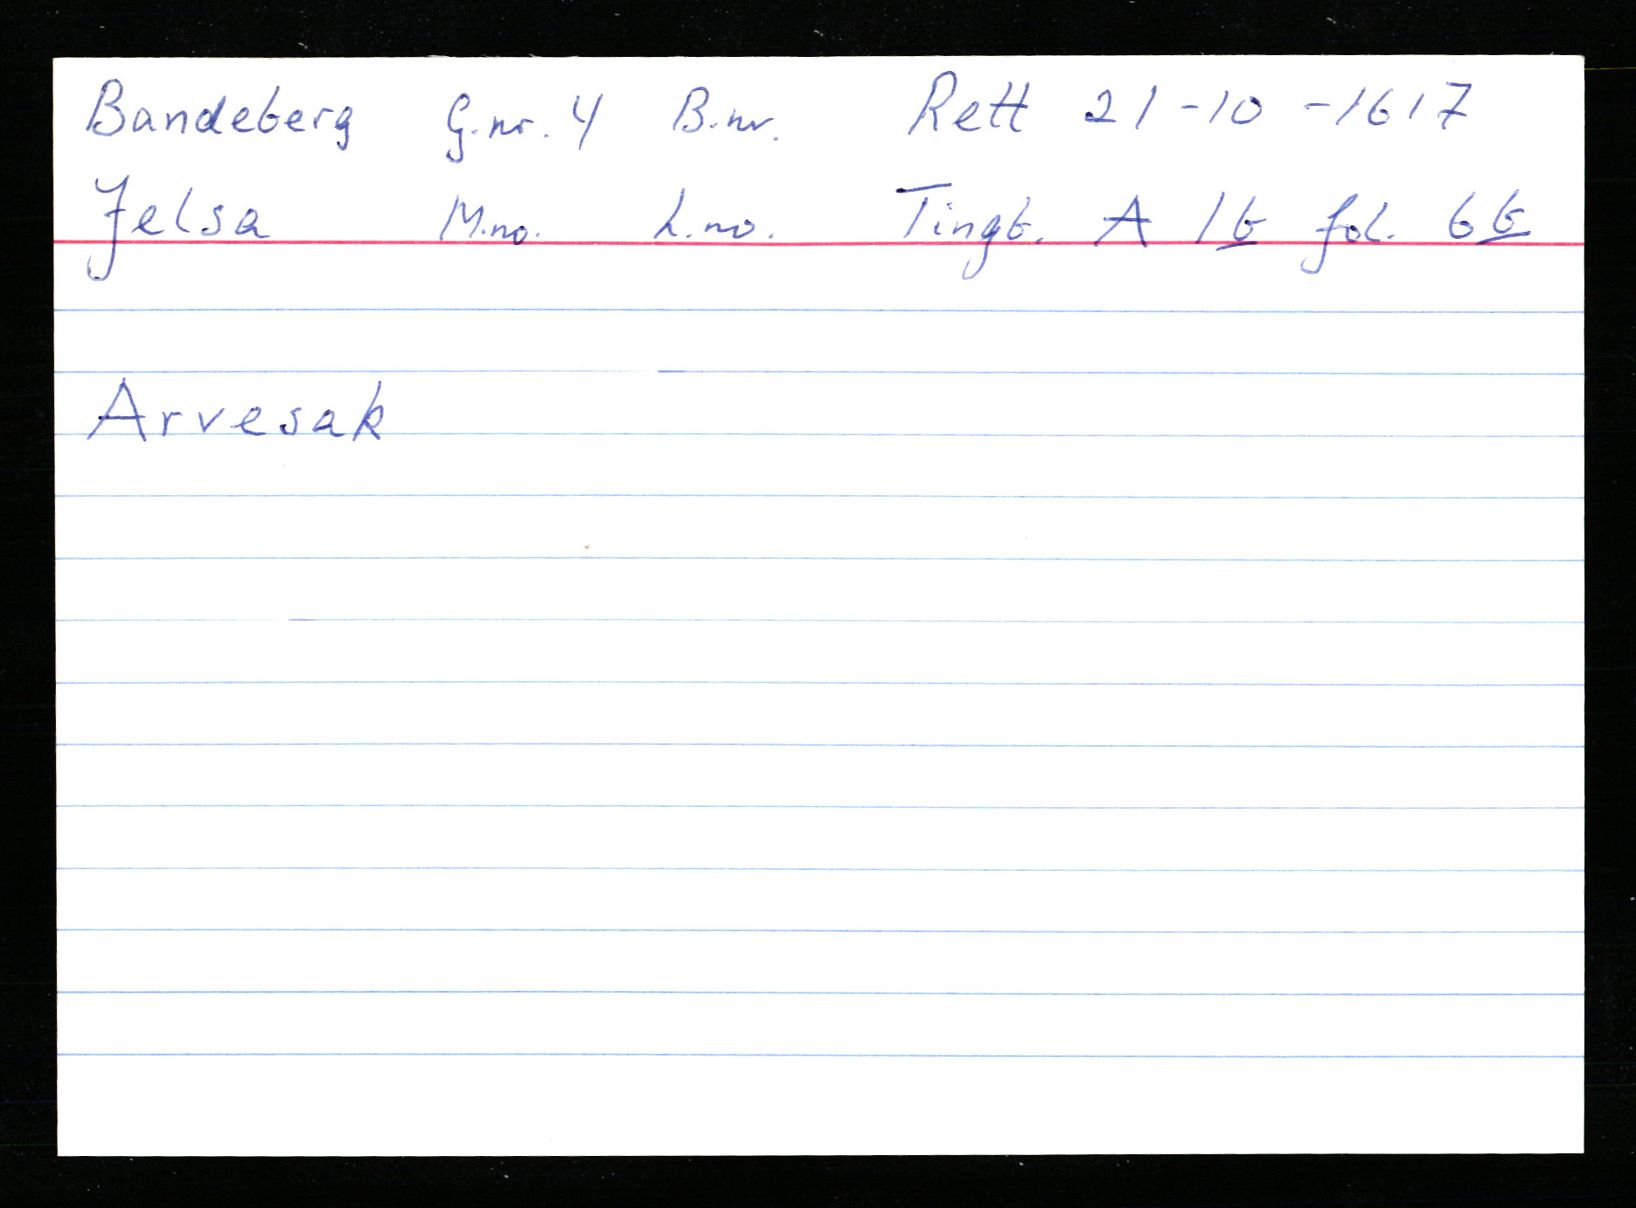 Bandeberg G.nr. 4 B.nr. Rett 21-10-1617
Jelsa M.no. L.no. Tingb. A 1b fol. 6b
Arvesak